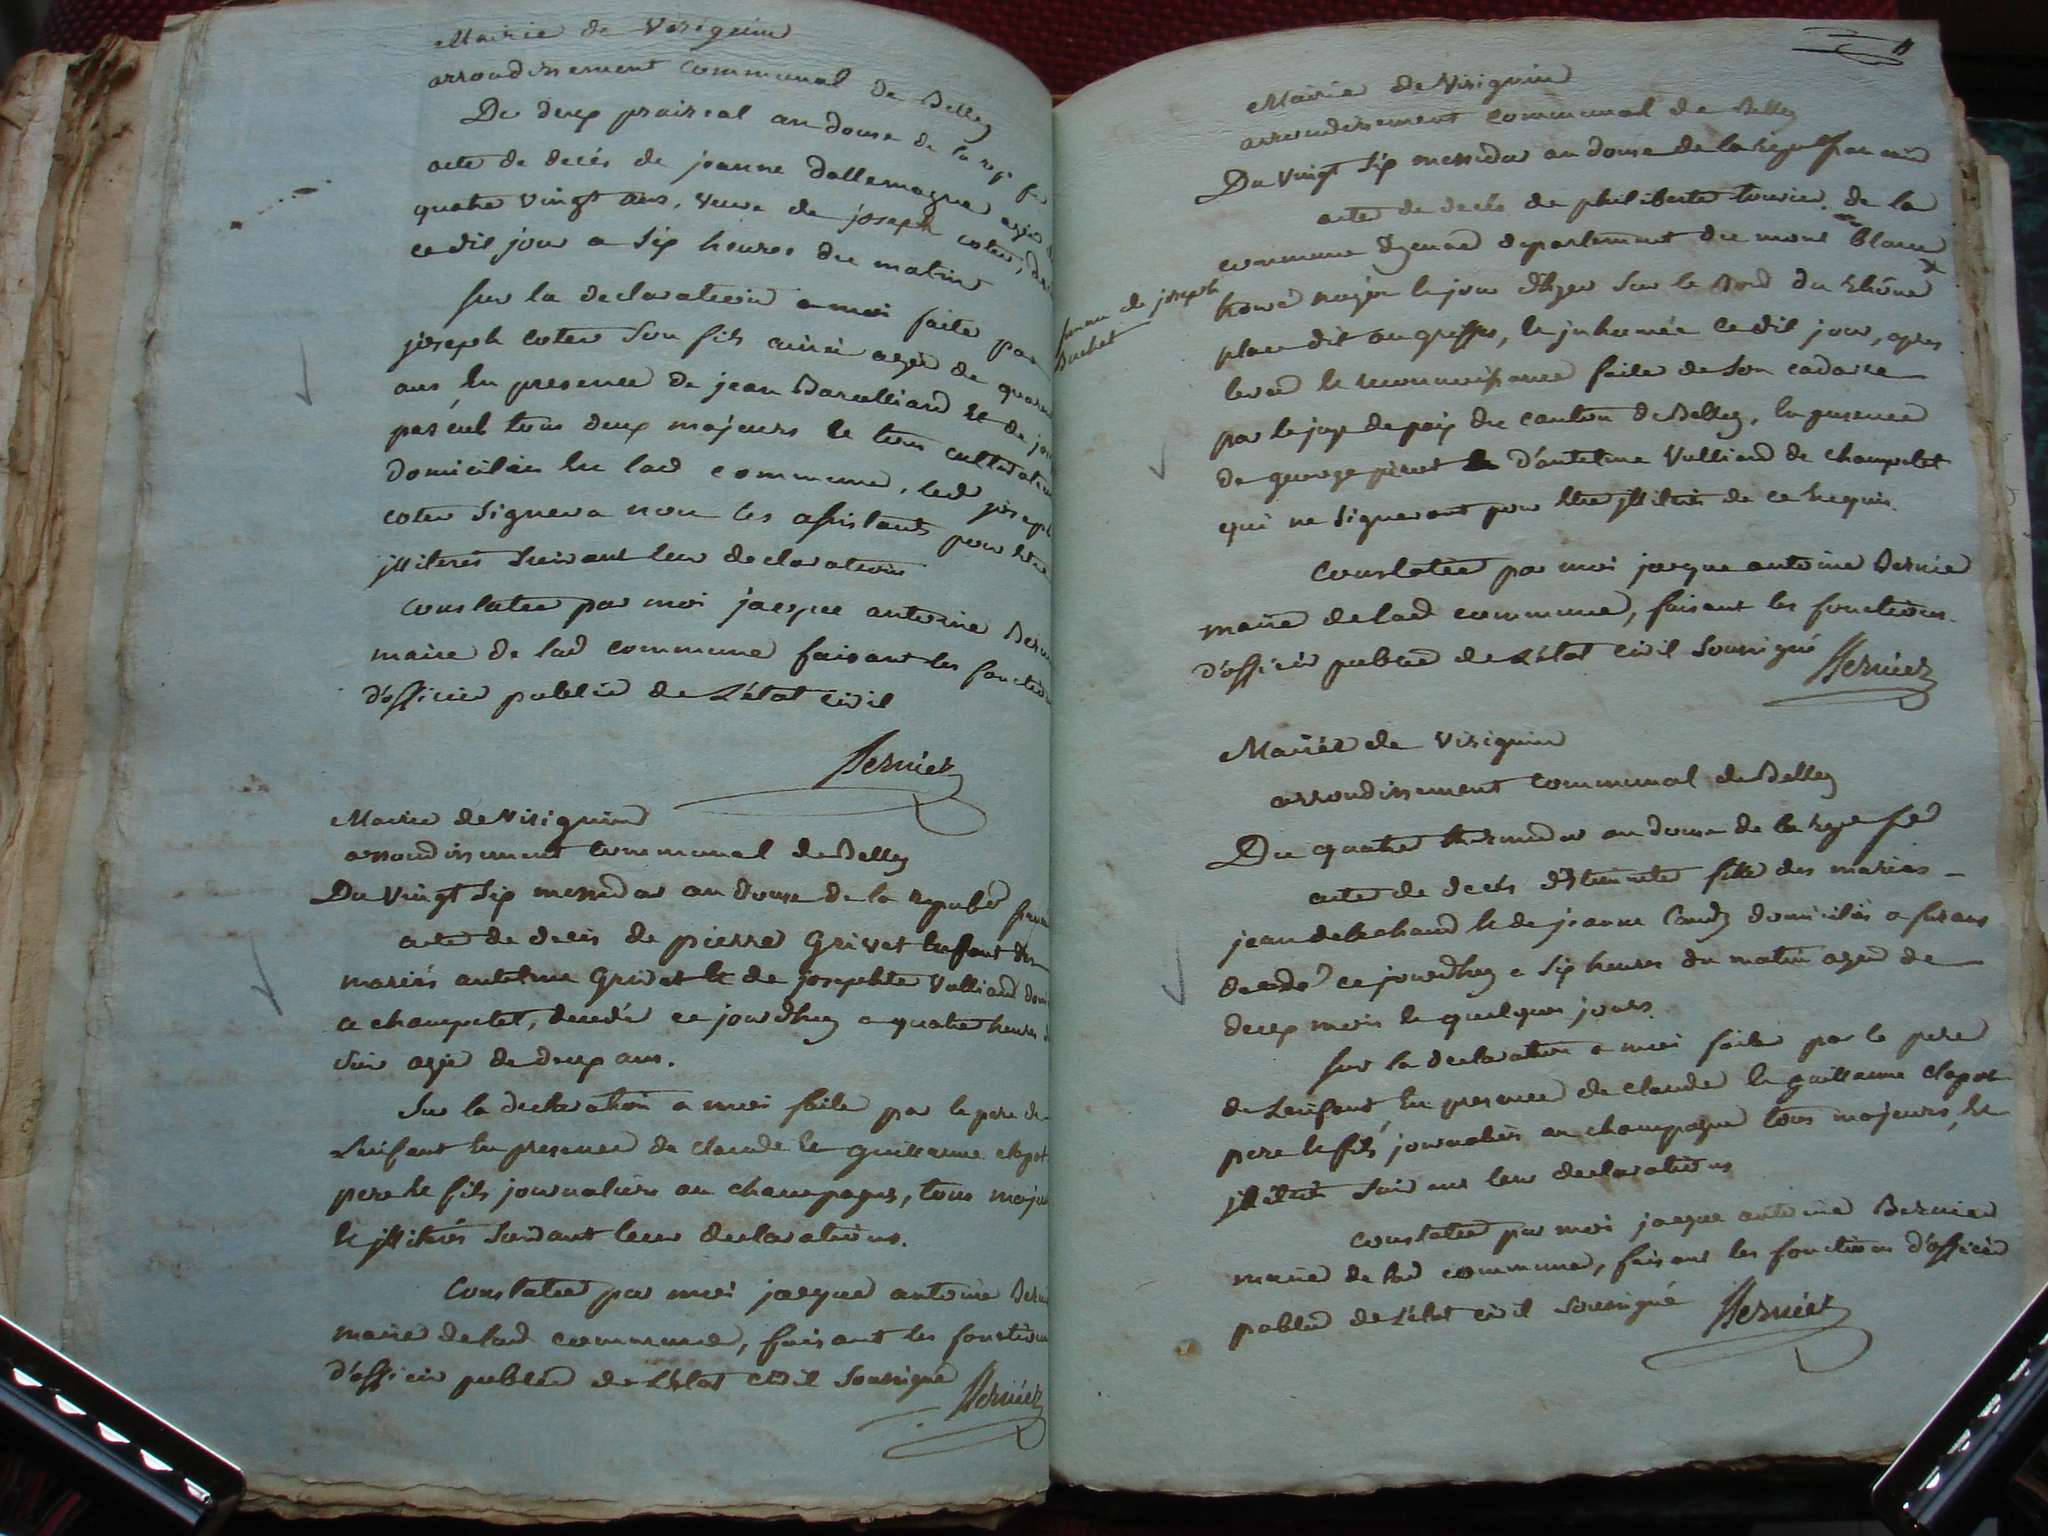 Mairie de Virignin
arrondissement communal de Belley
Du deux praireal an douse de la rep. fr
acte de decés de jeanne dallemagne agée
quatre vingt ans, veuve de joseph coter,
ce dit jour a six heures du matin
sur la declaration a moi faite par
joseph coter son fils ainé agé de quara
ans, en presence de jean Barcelliard et de
tous deux majeurs et tous cultivate
domiciliés en lad commune, led joseph
coter signera non les assistants pour etre
illiterés suivant leur declaration
constatée par moi jacque antoine Berni
maire de lad commune faisant les fonctio
d'officier public de L'état civil
Bernier
Mairie de Virignin
arrondissement communal de Belley
Du vingt six messidor an douse de la republ fran
acte de decés de pierre Grivet enfant des
mariés antelme Grivet et de josephte Vulliard domi
a champetel, decedé ce jourdhuy a quatre heures
soir agé de deux ans.
Sur la declaration a moi faite par le pere de
L'enfant en presence de claude et guillaume clapot
pere et fils journaliers au champagne, tous maje
et illiterés suivant leur declarations.
Constatée par moi jacque antoine Berni
maire de lad commune, faisant les fonctions
d'officier public de L'état civil soussigné
Bernier
Mairie de Virignin
arrondissement communal de Belley
Du vingt six messidor an douse de la repu francaise
acte de decés de philiberte de la
commune departement du mont Blanc
femme de joseph
Buchet
trouvé noyée le jour d'hyer sur le Bord du Rhône
place dit et inhumée ce dit jour, apres
levée et reconnoissance faite de son cadavre
par le juge de paix du canton de Belley, en presence
de george et d'antelme Vulliard de champetel
qui ne signeront pour etre illiterés de ce requis.
Constatée par moi jacque antoine Bernier
maire de lad commune, faisant les fonctions
d'officier public de L'état civil soussigné
Bernier
Mairie de Virignin
arrondissement communal de Belley
Du quatre thermidor an douse de la repu fse
acte de decés d'Etiennete fille des mariés
jean delechaud et de jeanne domiciliés a
decedé ce jourdhuy a six heures du matin agée de
deux mois et quelques jours.
sur la declaration a moi faite par le pere
de L'enfant, en presence de claude et guillaume clapot
pere et fils, journaliers au champagne tous majeurs, et
illiterés suivant leur declarations
constatée par moi jacque antoine Bernier
maire de lad commune, faisant les fonctions d'officier
public de L'état civil soussigné
Bernier